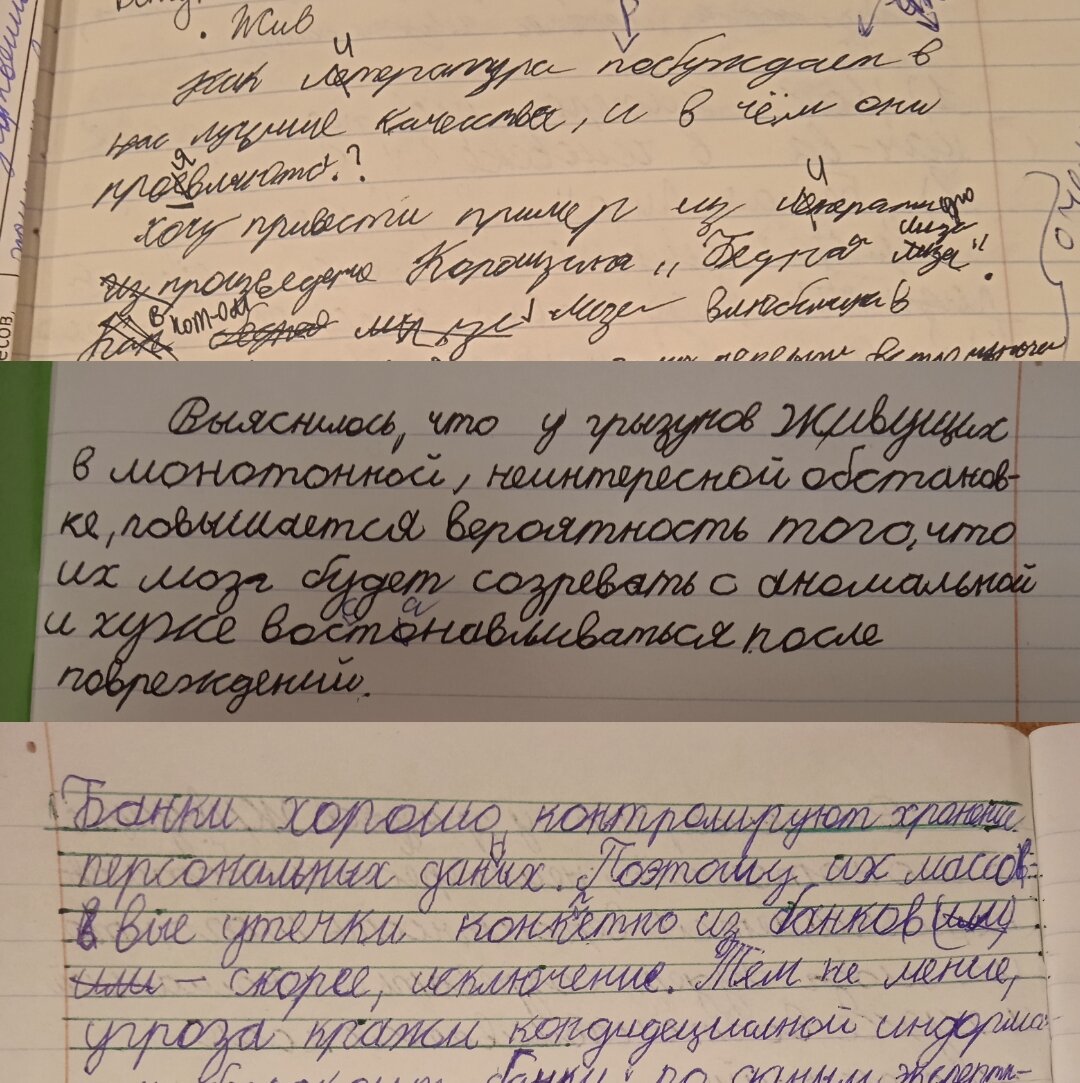 Жив
Как литература побуждает в
нас лучшие качества, и в чём они
проявляются?
Хочу привести пример из литературного
произведения Карамзина „Бедная Лиза".
Лиза влюбилась в
Выяснилось, что у грызунов живущих
в монотонной, неинтересной обстанов-
ке, повышается вероятность того, что
их мозг будет созревать с аномальной
и хуже востанавливаться после
повреждений.
Банки хорошо контролируют хранение
персональных данных. Поэтому их массов-
вые утечки конкретно из банков
— скорее, исключение. Тем не мение,
угроза кражи кондидециалной информа-
банки по даным эксперт-